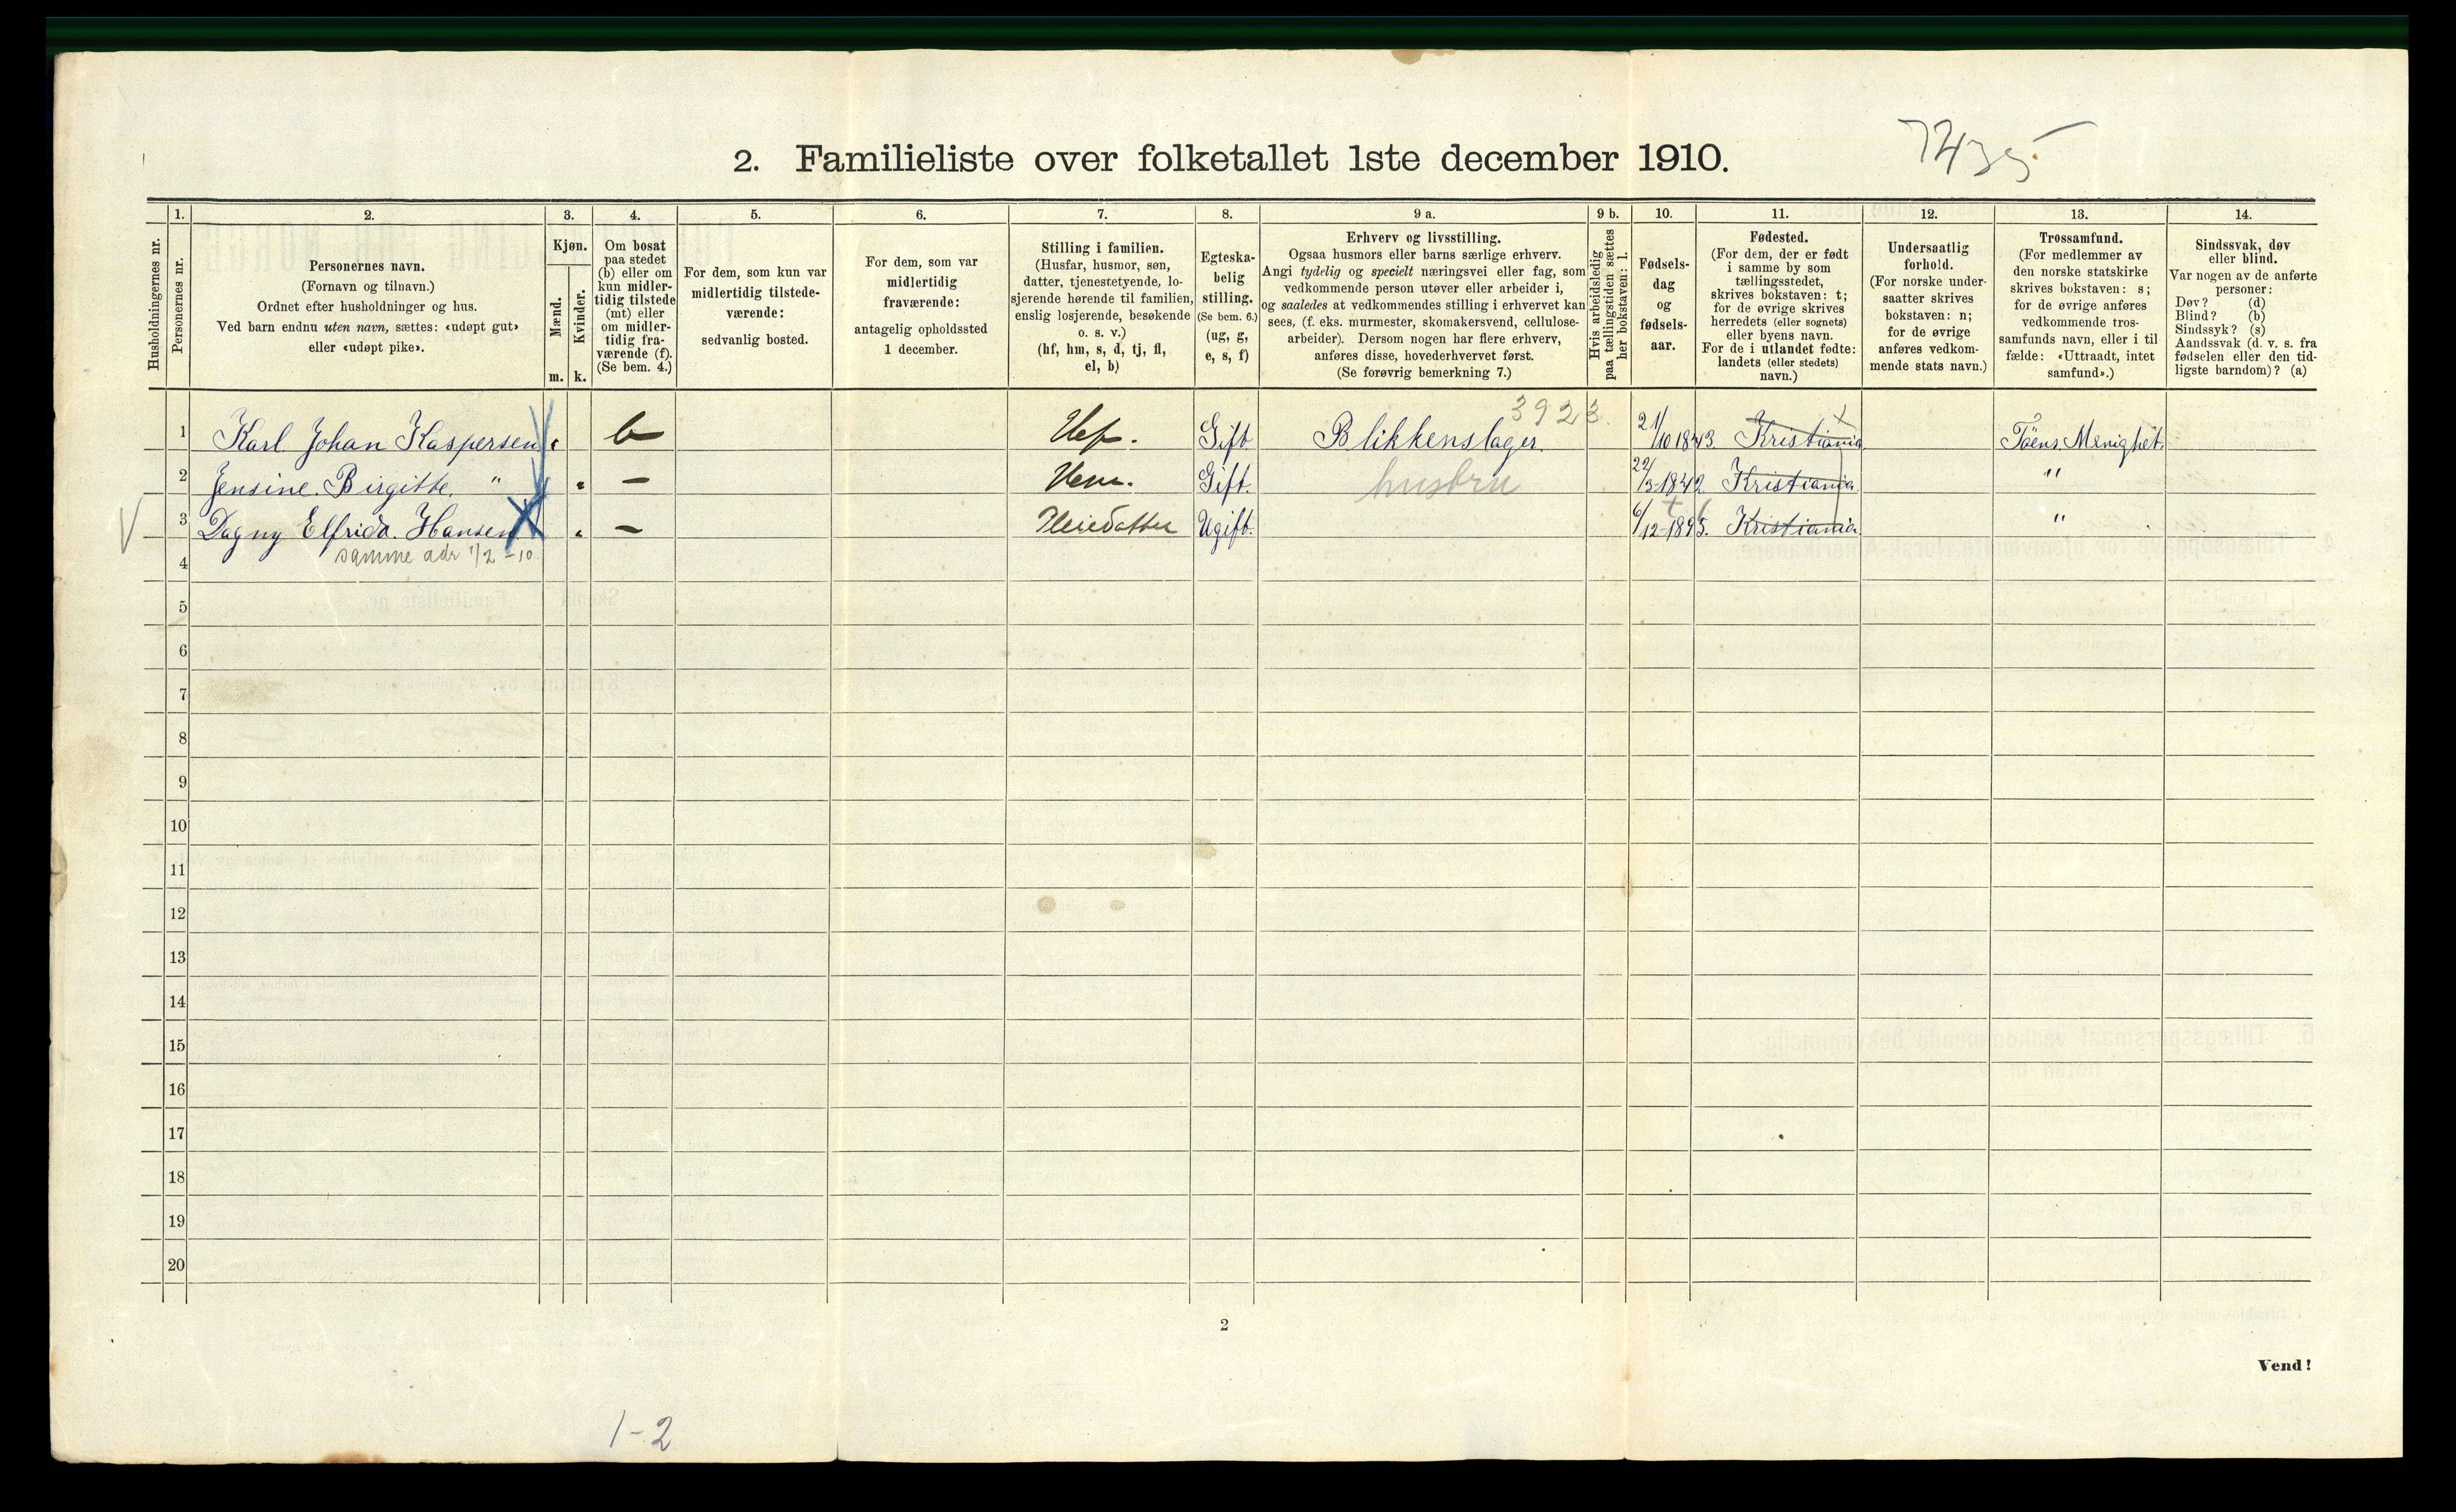 7435
2. Familieliste over folketallet 1ste december 1910.
Husholdningernes nr.
1.
Personernes nr.
2.
Personernes navn.
(Fornavn og tilnavn.)
Ordnet efter husholdninger og hus.
Ved barn endnu uten navn, sættes: «udøpt gut»
eller «udøpt pike».
3.
Kjøn.
Mænd.
Kvinder.
m. k.
4.
Om bosat
paa stedet
(b) eller om
kun midler-
tidig tilstede
(mt) eller
om midler-
tidig fra-
værende (f).
(Se bem. 4.)
5.
For dem, som kun var
midlertidig tilstede-
værende:
sedvanlig bosted.
6.
For dem, som var
midlertidig
fraværende:
antagelig opholdssted
1 december.
7.
Stilling i familien.
(Husfar, husmor, søn,
datter, tjenestetyende, lo-
sjerende hørende til familien,
enslig losjerende, besøkende
o. s. v.)
(hf, hm, s, d, tj, fl,
el, b)
8.
Egteska-
belig
stilling.
(Se bem. 6.)
(ug, g,
e, s, f)
9 a.
Erhverv og livsstilling.
Ogsaa husmors eller barns særlige erhverv.
Angi tydelig og specielt næringsvei eller fag, som
vedkommende person utøver eller arbeider i,
og saaledes at vedkommendes stilling i erhvervet kan
sees, (f. eks. murmester, skomakersvend, cellulose-
arbeider). Dersom nogen har flere erhverv,
anføres disse, hovederhvervet først.
(Se forøvrig bemerkning 7.)
9 b.
Hvis arbeidsledig
paa tællingstiden sættes
her bokstaven: l.
10.
Fødsels-
dag
og
fødsels-
aar.
11.
Fødested.
(For dem, der er født
i samme by som
tællingsstedet,
skrives bokstaven: t;
for de øvrige skrives
herredets (eller sognets)
eller byens navn.
For de i utlandet fødte:
landets (eller stedets)
navn.)
12.
Undersaatlig
forhold.
(For norske under-
saatter skrives
bokstaven: n;
for de øvrige
anføres vedkom-
mende stats navn.)
13.
Trossamfund.
(For medlemmer av
den norske statskirke
skrives bokstaven: s;
for de øvrige anføres
vedkommende tros-
samfunds navn, eller i til-
fælde: «Uttraadt, intet
samfund».)
14.
Sindssvak, døv
eller blind.
Var nogen av de anførte
personer:
Døv? (d)
Blind? (b)
Sindssyk? (s)
Aandssvak (d. v. s. fra
fødselen eller den tid-
ligste barndom)? (a)
3923.
1 Karl Johan Kaspersen b Hf. Gift Blikkenslager. 21/10 1843. Kristiania Töens Menighet.
2 Jensine Birgitte " – Hm. Gift. husbru 22/3-1842 Kristiania "
3 Dagny Elfrida Hansen – Pleiedatter Ugift. 6/12-1895. Kristiania "
samme adr 1/2 -10
4
5
6
7
8
9
10
11
12
13
14
15
16
17
18
19
20
2
Vend!
1-2